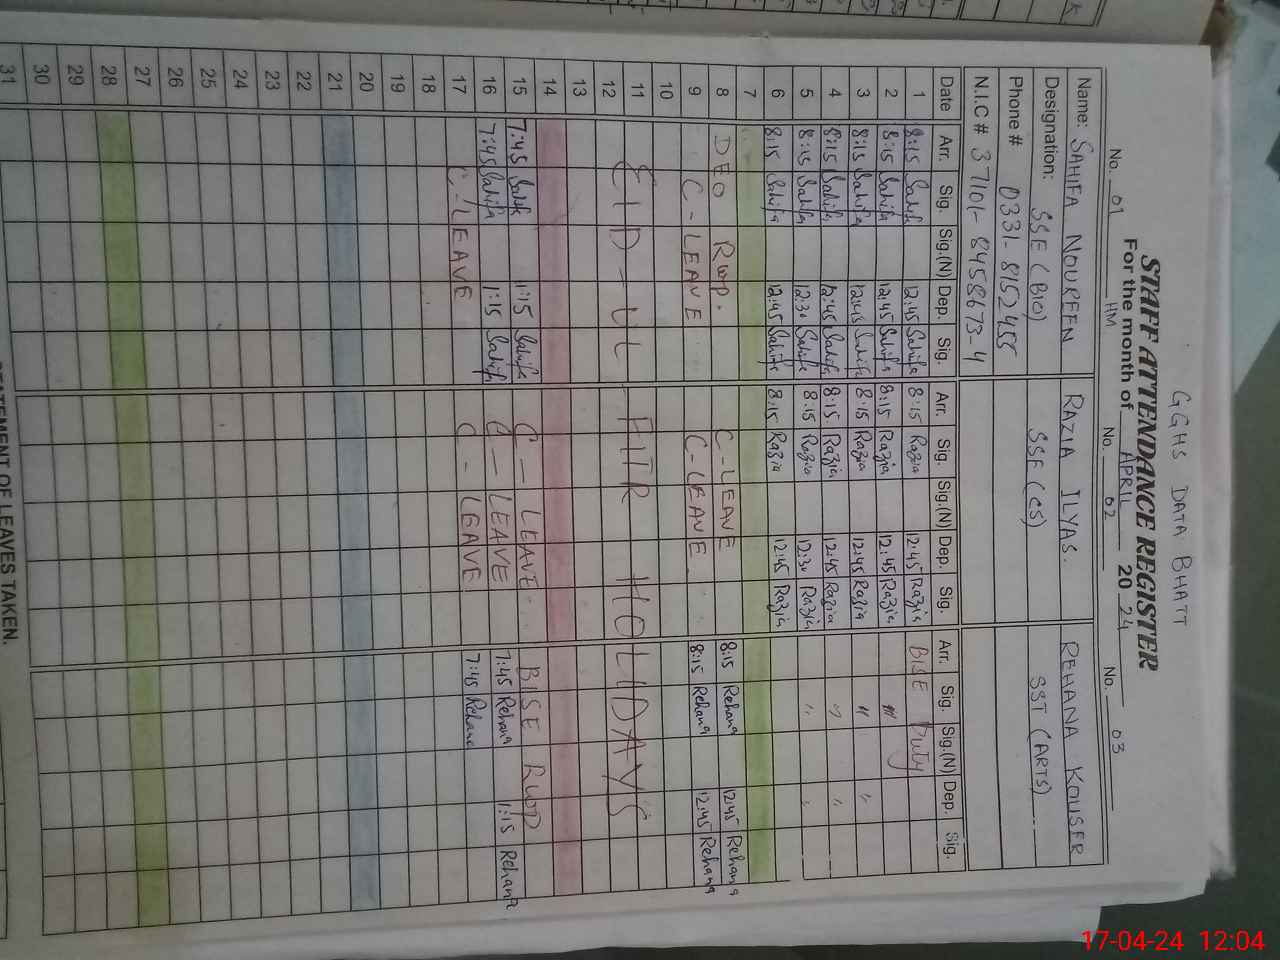 GGHS DATA BHATT
STAFF ATTENDANCE REGISTER
For the month of APRIL 20 24
No. 01 HM No. 02 No. 03
Name: SAHIFA NOUREEN RAZIA ILYAS. REHANA KOUSER
Designation: SSE (BIO) SSE (CS) SST (ARTS)
Phone # 0331-8152455
N.I.C # 37101-8458673-4
Date Arr. Sig. Sig.(N) Dep. Sig. Arr. Sig. Sig.(N) Dep. Sig. Arr. Sig. Sig.(N) Dep. Sig.
1 8:15 Sahifa 12:45 Sahifa 8:15 Razia 12:45 Razia BISE Duty
2 8:15 Sahifa 12:45 Sahifa 8:15 Razia 12:45 Razia "
3 8:15 Sahifa 12:45 Sahifa 8:15 Razia 12:45 Razia " "
4 8:15 Sahifa 12:45 Sahifa 8:15 Razia 12:45 Razia " "
5 8:15 Sahifa 12:30 Sahifa 8:15 Razia 12:30 Razia " "
6 8:15 Sahifa 12:45 Sahifa 8:15 Razia 12:45 Razia
7
8 DEO Rwp. C-LEAVE 8:15 Rehana 12:45 Rehana
9 C-LEAVE C-LEAVE 8:15 Rehana 12:45 Rehana
10
11 EID-UL FITR HOLIDAYS
12
13
14
15 7:45 Sahifa 1:15 Sahifa C-LEAVE BISE RWP
16 7:45 Sahifa 1:15 Sahifa C-LEAVE 7:45 Rehana 1:15 Rehana
17 C-LEAVE C-LEAVE 7:45 Rehana
18
19
20
21
22
23
24
25
26
27
28
29
30
31
STATEMENT OF LEAVES TAKEN.
17-04-24 12:04